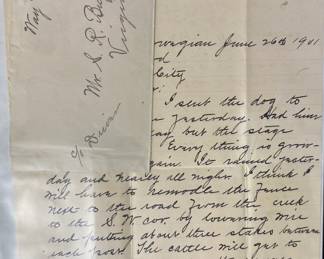 Way
Mr. S. R. Bu
Virgin
c/o Dewa
wegian June 26th 1901
d
City
I sent the dog to
yesterday. Had him
ay but the stage
Every thing is grow-
gain. It rained yester-
day and nearly all night. I think I
will have to remodle the fence
next to the road from the creek
to the S.W. cor. by lowering wire
and putting about three stakes between
each post. The cattle will get to